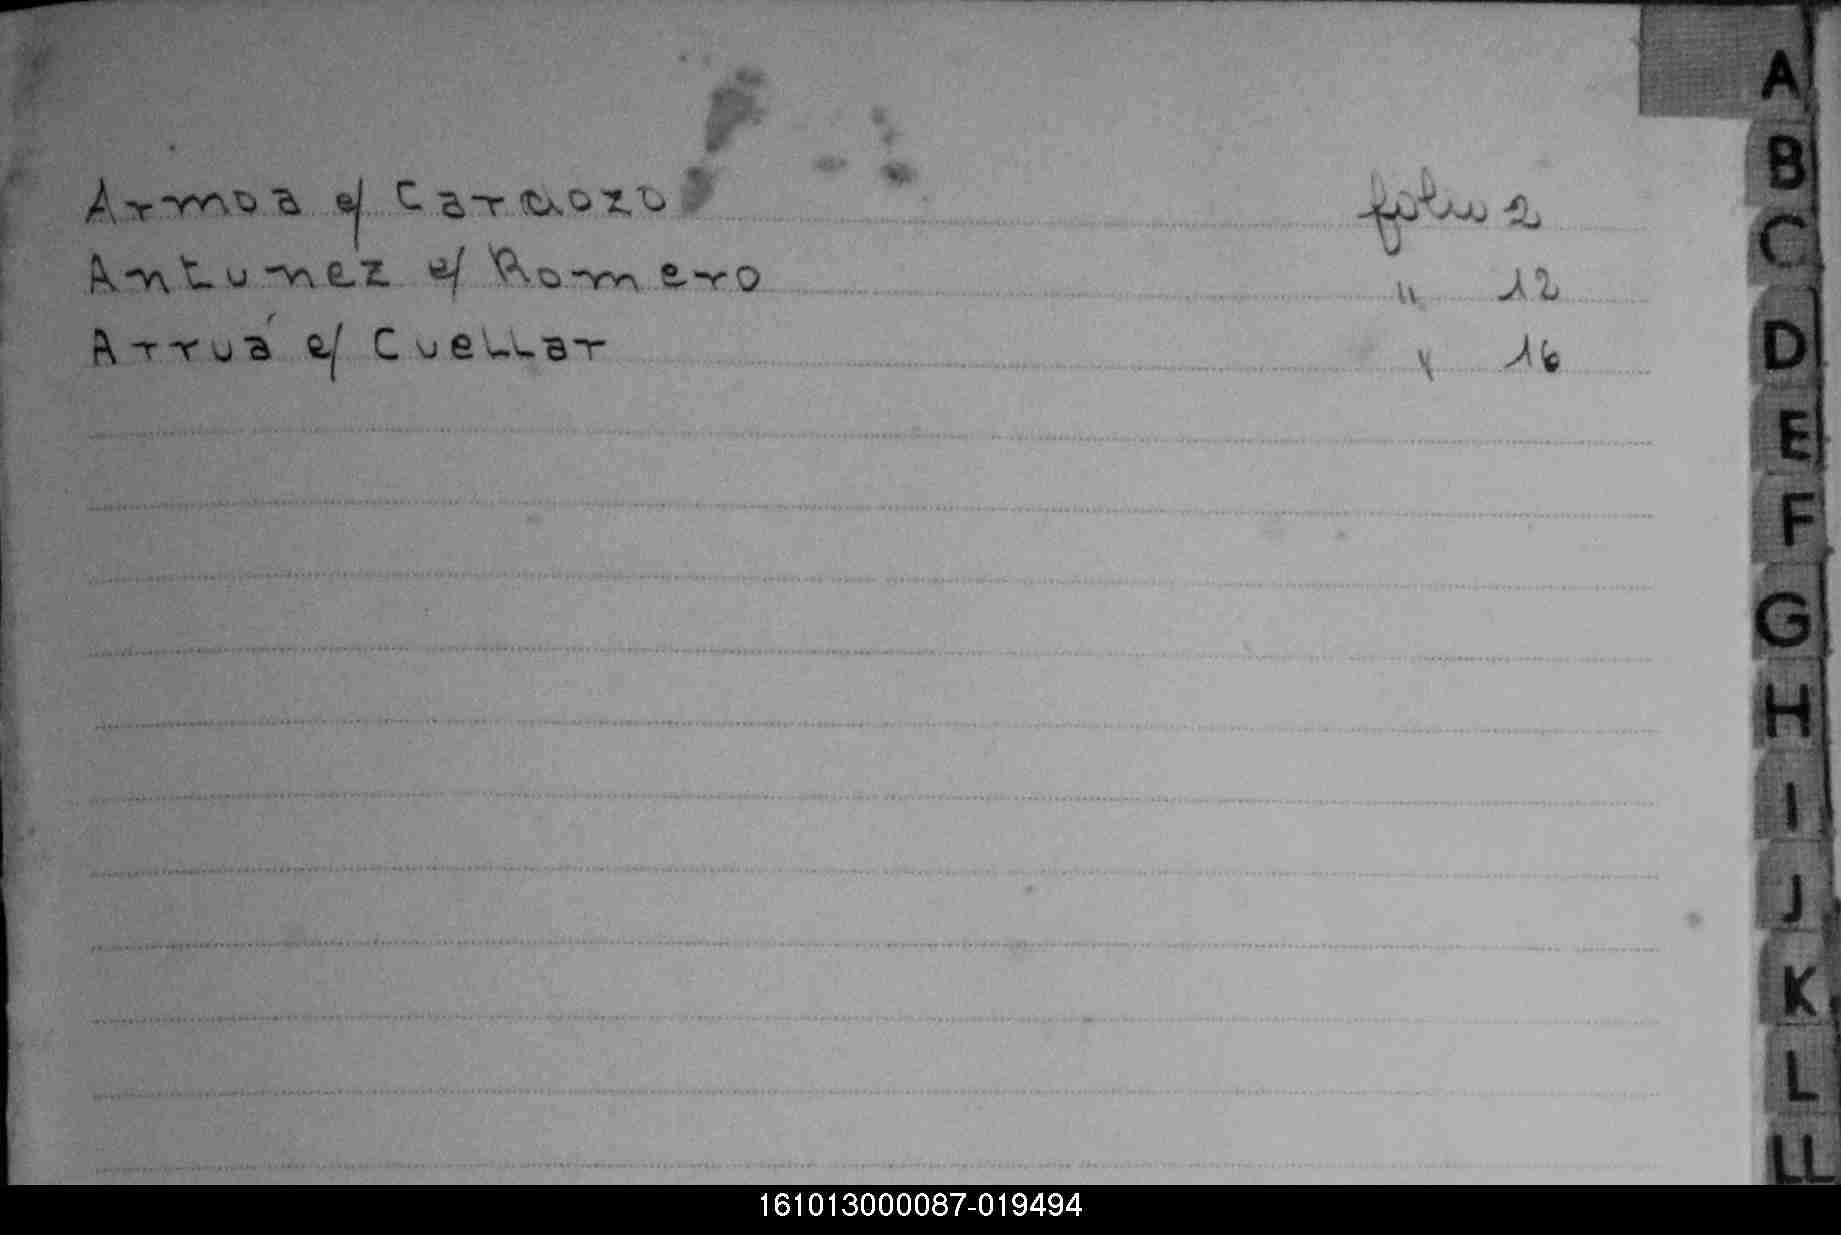 Armoa e/ Cardozo folio 2
Antunez e/ Romero " 12
Arruá e/ Cuellar " 16
A
B
C
D
E
F
G
H
I
J
K
L
LL
161013000087-019494